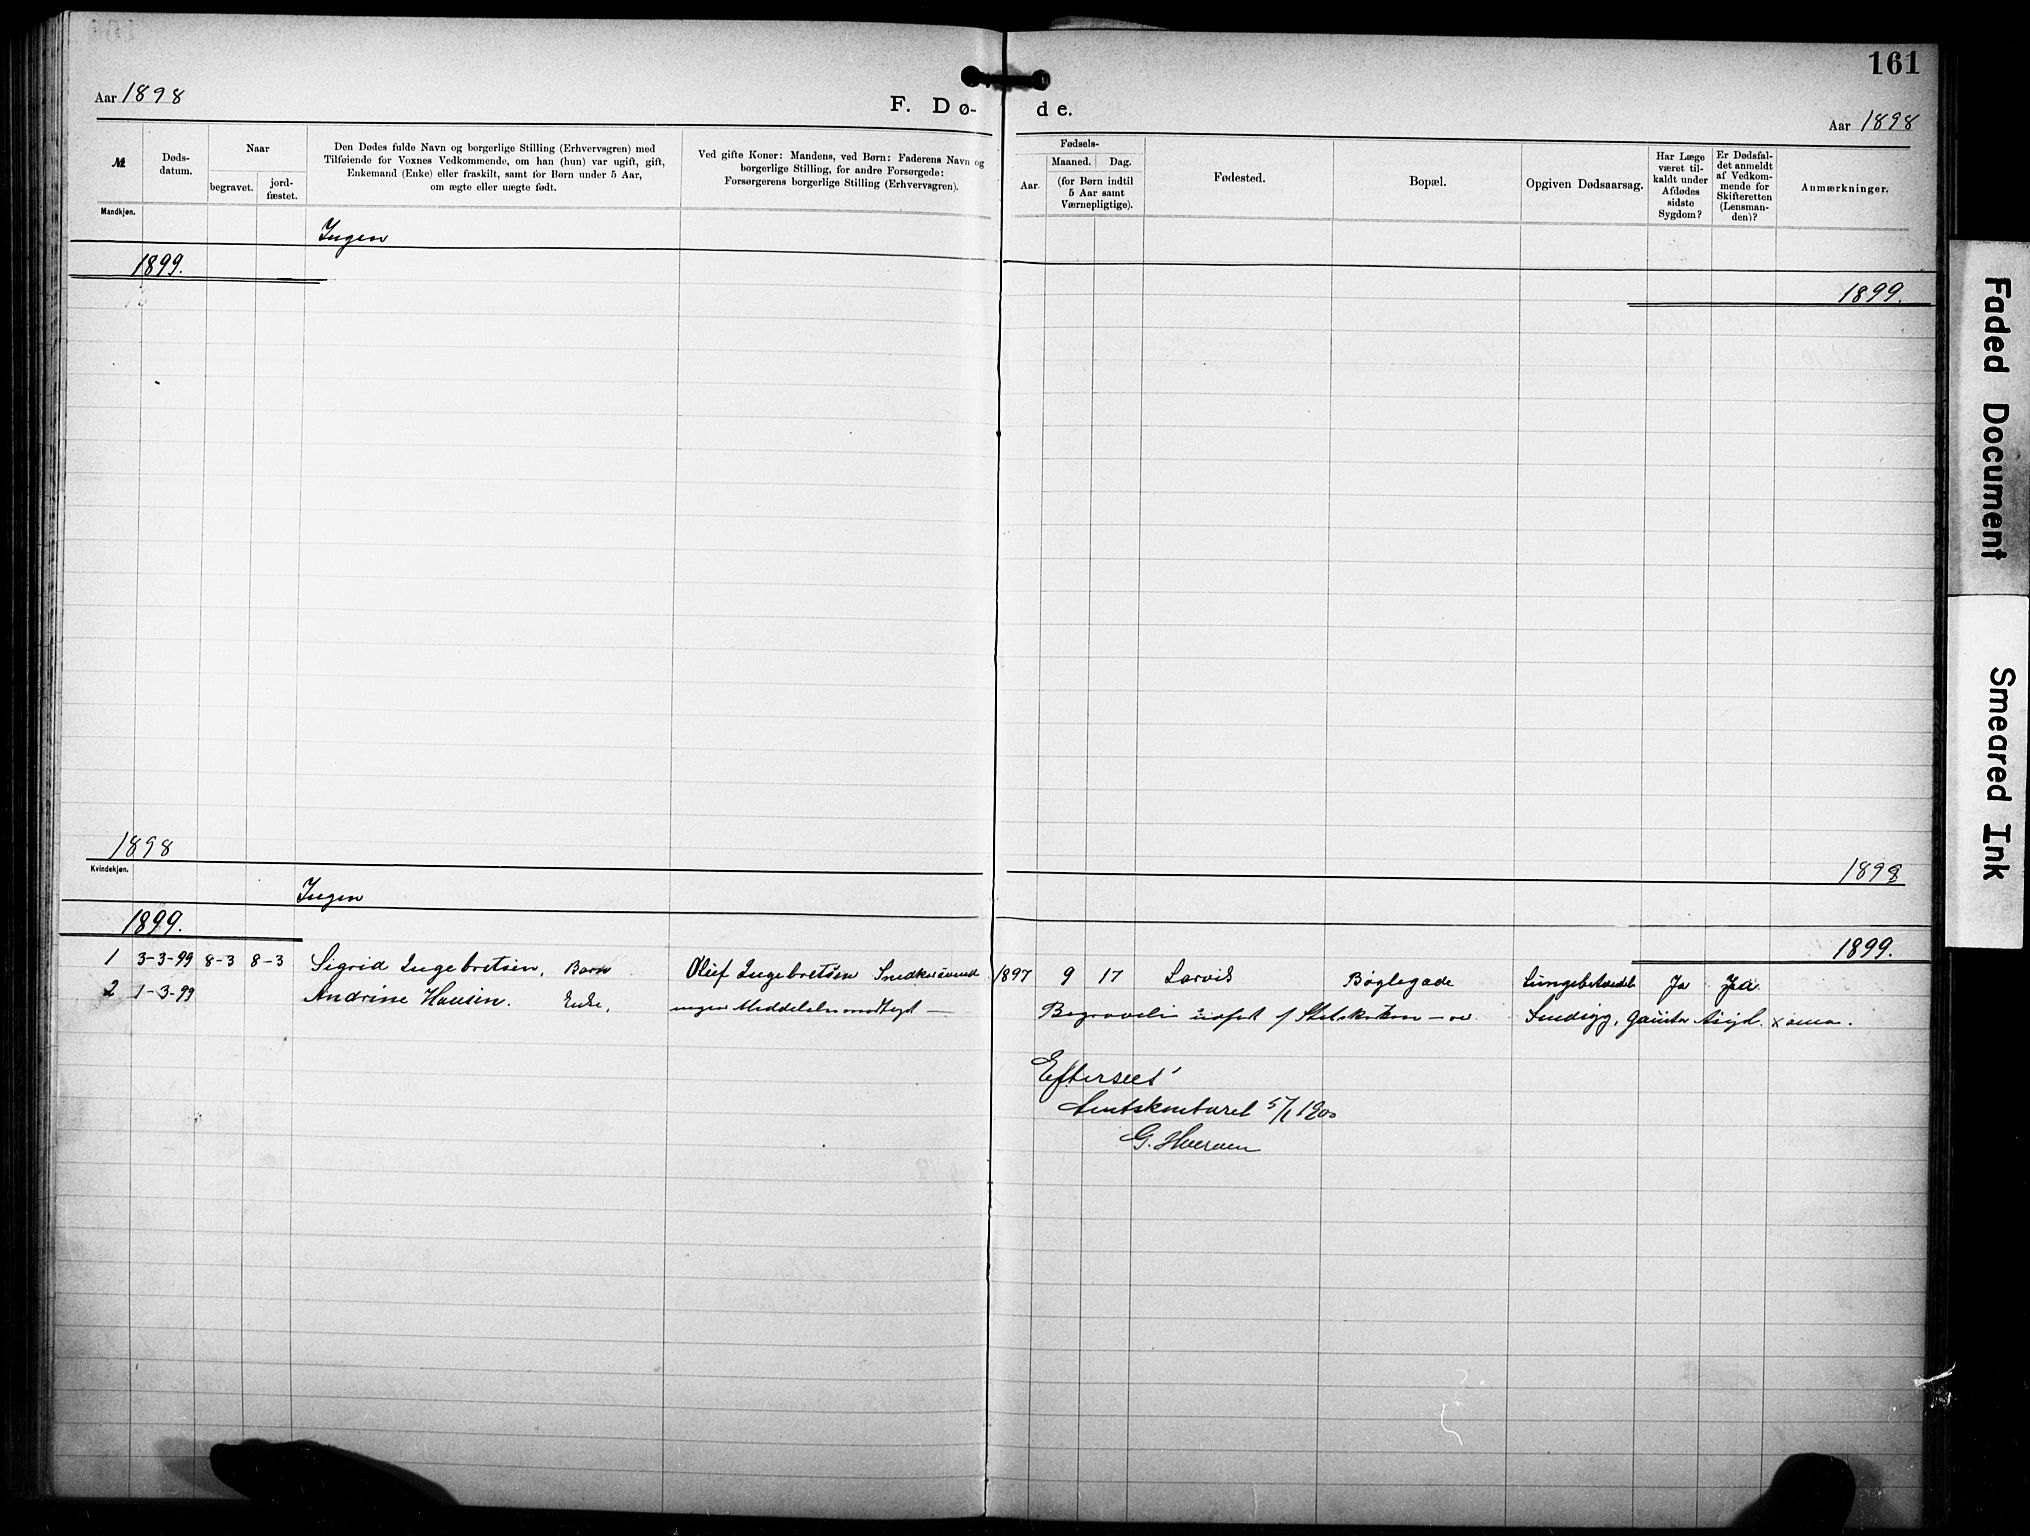 161
Aar 1898
F. Dø- de.
Aar 1898
№
Døds-
datum.
Naar
begravet.
jord-
fæstet.
Den Dødes fulde Navn og borgerlige Stilling (Erhvervsgren) med
Tilføiende for Voxnes Vedkommende, om han (hun) var ugift, gift,
Enkemand (Enke) eller fraskilt, samt for Børn under 5 Aar,
om ægte eller uægte født.
Ved gifte Koner: Mandens, ved Børn: Faderens Navn og
borgerlige Stilling, for andre Forsørgede:
Forsørgerens borgerlige Stilling (Erhvervsgren).
Fødsels-
Aar.
Maaned. Dag.
(for Børn indtil
5 Aar samt
Værnepligtige).
Fødested.
Bopæl.
Opgiven Dødsaarsag.
Har Læge
været til-
kaldt under
Afdødes
sidste
Sygdom?
Er Dødsfal-
det anmeldt
af Vedkom-
mende for
Skifteretten
(Lensman-
den)?
Anmærkninger.
Mandkjøn.
Ingen
1899.
1899.
1898
1898
Kvindekjøn.
Ingen
1899.
1899.
1 3-3-99 8-3 8-3 Sigrid Ingebretsen, Barn Oluf Ingebretsen 1897 9 17 Larvik Bøglegade Ja Ja
2 1-3-99 Andrine Hansen. Enke,
Efterseet
Amtskontoret 5/1 1900
G.
Faded Document
Smeared Ink